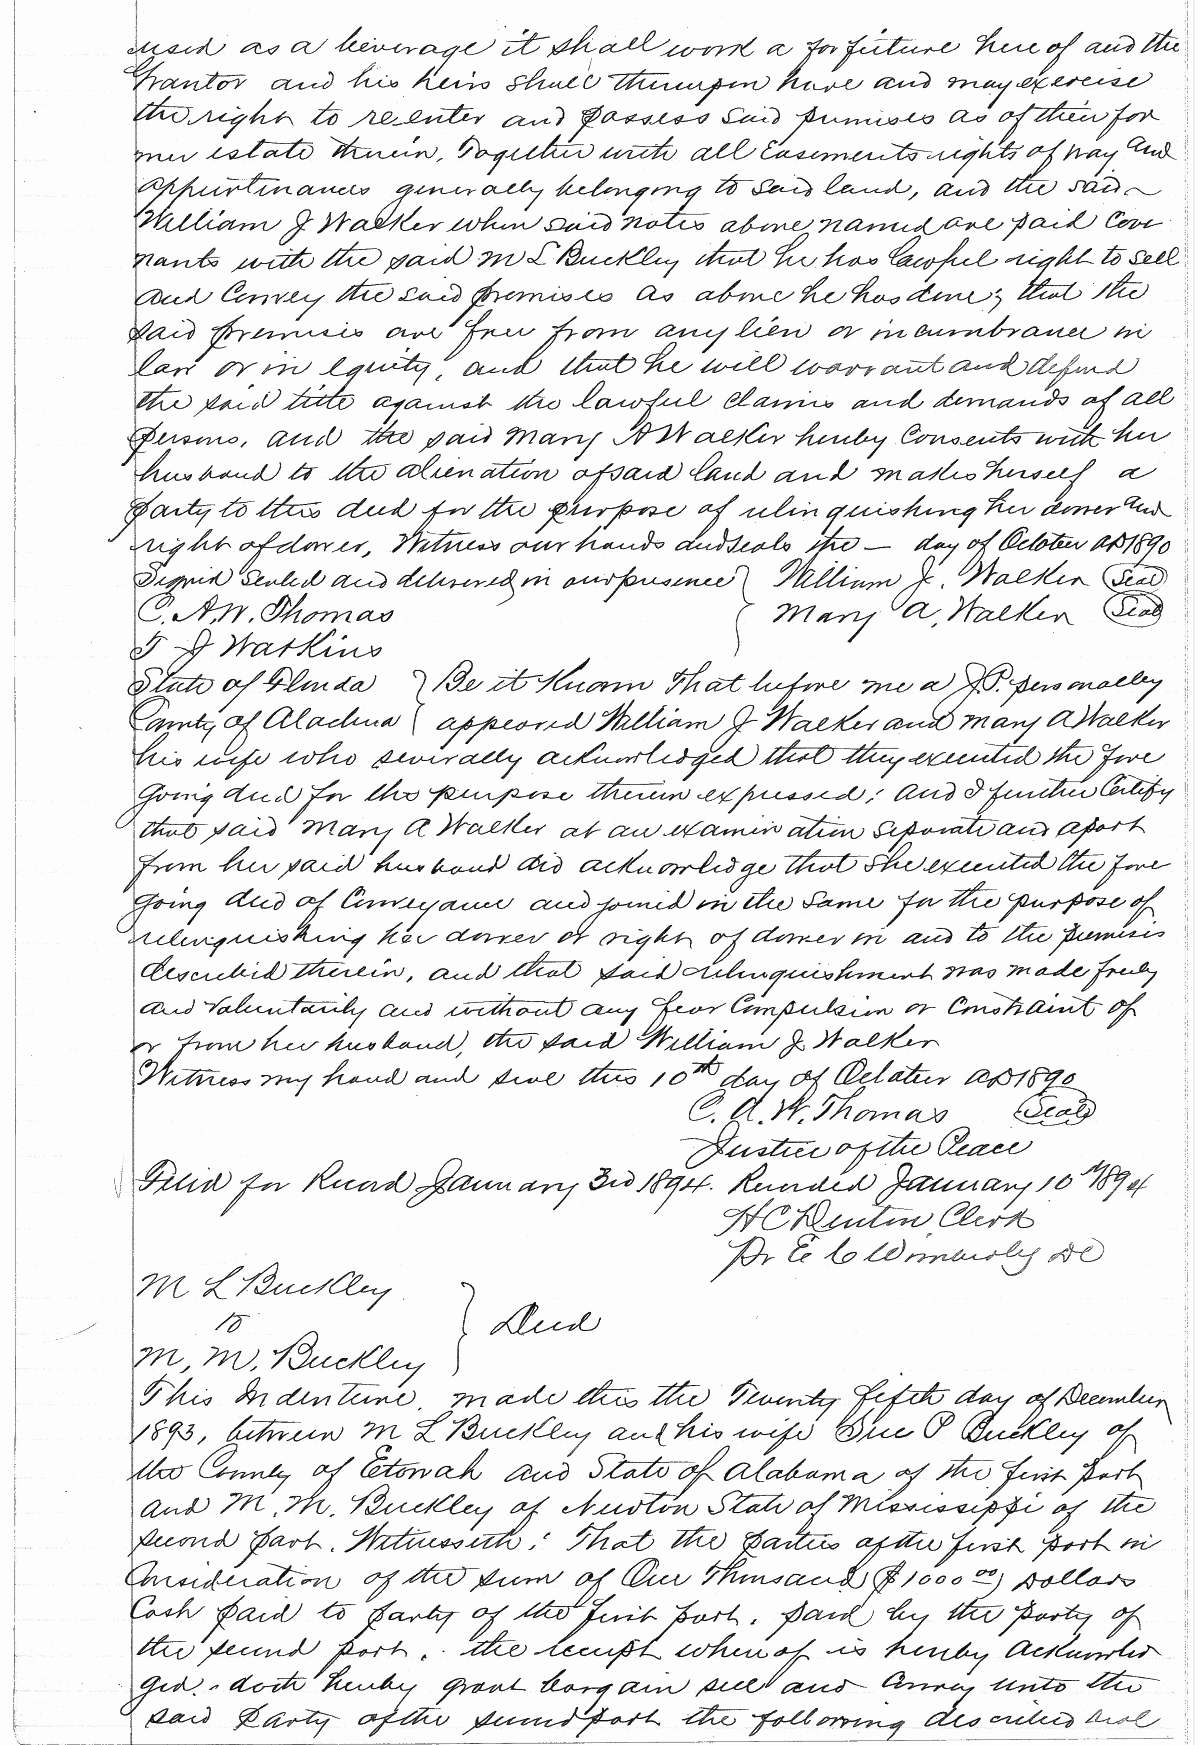 used as a beverage it shall work a forfeiture here of and the
Grantor and his heirs shall thereupon have and may exercise
the right to reenter and possess said premises as of their for
mer estate therein. Together with all Easements rights of way and
appurtinances generally belonging to said land, and the said
William J Walker when said notes above named are paid Cove
nants with the said M L Buckley that he has lawful right to sell
and Convey the said premises as above he has done; that the
said premises are free from any lien or incumbrance in
law or in equity, and that he will warrant and defend
the said title against the lawful claims and demands of all
Persons, and the said Mary A Walker hereby Consents with her
husband to the alienation of said land and makes herself a
Party to this deed for the purpose of relinquishing her dower and
right of dower, Witness our hands and seals the — day of October AD1890
Signed Sealed and delivered in our presence } William J. Walker (Seal)
C. A. W. Thomas { Mary A, Walker (Seal)
J J Watkins
State of Florida } Be it Known That before me a J.P. personalley
County of Alachua { appeared William J Walker and Mary A Walker
his wife who severally acknowledged that they executed the Fore
Going deed for the purpose therein expressed; And I further Certify
that said Mary A Walker at an examination Separate and apart
from her said husband did acknowledge that she executed the fore
going deed of Conveyance and joined in the same for the purpose of
relinquishing her dower or right of dower in and to the premises
described therein, and that said relinquishment was made freely
and Voluntarily and without any fear Compulsion or Constraint of
or from her husband, the said William J Walker
Witness my hand and seal this 10th day of October AD1890
C. A. W. Thomas (Seal)
Justice of the Peace
Filed for Record January 3rd 1894. Recorded January 10th 1894
H C Denton Clerk
Pr E C Wimberly DC
M L Buckley
to } Deed
M, M, Buckley
This Indenture, made this the Twenty fifth day of December
1893, between M L Buckley and his wife Sue P Buckley of
the County of Etowah and State of Alabama of the first part
and M. M. Buckley of Newton State of Mississippi of the
second part. Witnesseth: That the Parties of the first part in
Consideration of the sum of One Thousand ($1000 00) Dollars
Cash paid to party of the first part, paid by the party of
the second part, the receipt whereof is hereby acknowled
ged, doth hereby grant bargain sell and Convey unto the
said Party of the second part the following described real